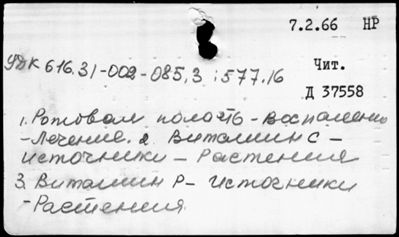 7.2.66 НР
УДК 616.31-002-085,3 : 577.16
Чит.
Д 37558
1. Ротовая полость - Воспаление
- Лечение. 2. Витамин С -
источники - Растения
3. Витамин Р - Источники
- Растения.